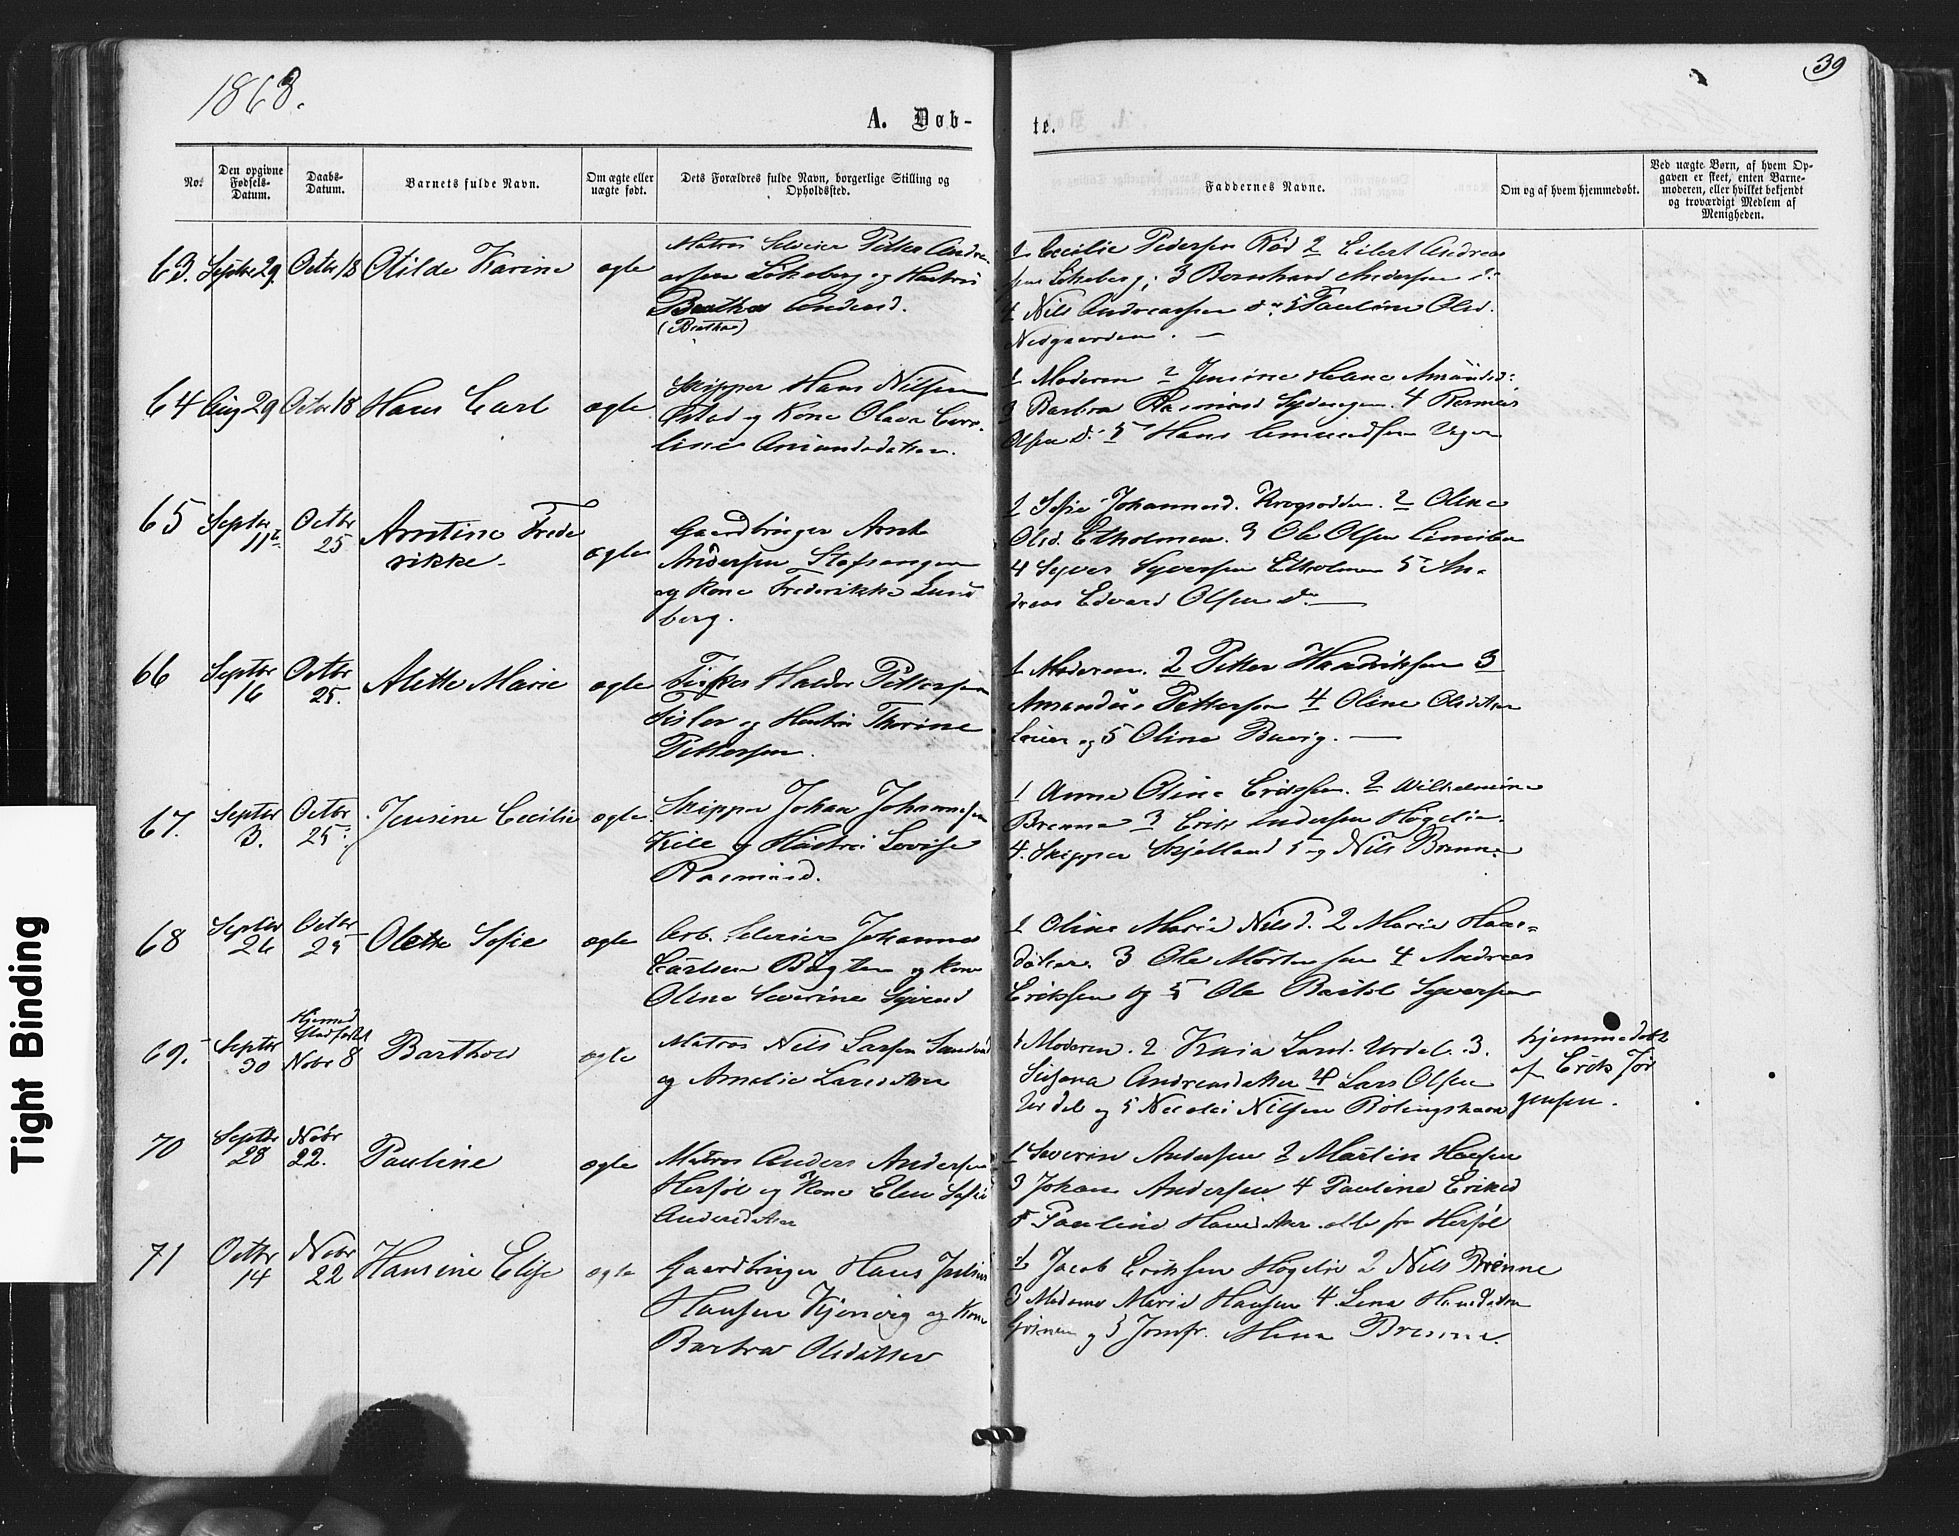 1868.
39
A. Døb-
te.
No.
Den opgivne Fødsels-Datum.
Daabs-Datum.
Barnets fulde Navn.
Om ægte eller uægte født.
Dets Forældres fulde Navn, borgerlige Stilling og Opholdssted.
Faddernes Navne.
Om og af hvem hjemmedøbt.
Ved uægte Børn, af hvem Opgaven er skeet, enten Barnemoderen, eller hvilket bekjendt og troværdigt Medlem af Menigheden.
63. Septbr 29. Octbr 18 Otilde Karine ægte
Matros Petter Andre-
assen Løkeberg og Hustru
Berthe Andersd.
(Berthe)
1 Cecilie Pedersen Rød 2 Eilert Andreas
sen Løkeberg; 3 Bernhard Andersen do
4 Nils Andreassen do 5 Pauline Olsd.
Nedgaarden. —
64 Aug 29 Octbr 18 Hans Carl ægte
Skipper Hans Nilsen
og Kone Olava Caro-
line Amundsdatter.
1 Moderen 2 Jensine Helene Amunds:
3 Barbra Rasmusd 4 Rasmus
Olsen do 5 Hans Amundsen
65 Septbr 11te Octbr 25 Arntine Frede
rikke. ægte
Gaardbruger Arnt
Andersen
og Kone Frederikke Lund
berg.
1 Sofie Johannesd. 2 Oline
Olsd. Etholmen. 3 Ole Olsen
4 Syver Syversen Etholmen 5 An-
dreas Edvard Olsen do —
66 Septbr 16 Octbr 25. Alette Marie ægte
Fisker Halvor Pettersen
Tisler og Hustru Thorine
Pettersen.
1 Moderen. 2 Petter Hendriksen 3
Amandus Pettersen 4 Oline Olsdatter
og 5 Oline Buvig. —
67. Septbr 3. Octbr 25. Jensine Cecilie ægte.
Skipper Johan Johannesen
Kile og Hustru Lovise
Rasmusd.
1 Anne Oline Eriksen. 2 Wilhelmine
Brenne 3 Erik Andersen Høgelie.
4. Skipper Skjelland 5 og Nils Brenne
68 Septbr 26 Octbr 25 Olette Sofie ægte
Arb. Johannes
Carlsen Bugten og Kone
Oline Severine
1 Oline Marie Nilsd. 2 Marie Hans-
datter. 3 Ole Mortensen 4 Andreas
Eriksen og 5 Ole Syversen
69. Septbr 30 Hjemmed
Nobr 8 Barthold ægte
Matros Nils Larsen Sundvid
og Amalie Larsdatter
1 Moderen. 2 Kaia Urdal. 3.
Susana Andreasdatter 4 Lars Olsen
Urdal og 5 Nicolai Nilsen
Hjemmedøbt
af Erik Jør
gensen.
70 Septbr 28 Nobr 22. Pauline ægte
Matros Anders Andersen
Herføl og Kone Elen Sofie
Andersdatter
1 Severin Andersen 2 Martin Hansen
3 Johan Andersen 4 Pauline Eriksd
5 Pauline Hansdatter alle fra Herføl
71 Octbr 14 Nobr 22 Hansine Elise ægte
Gaardbruger Hans Julius
Hansen Kjønvig og Kone
Barbra Olsdatter
1 Jacob Eriksen Høgelie 2 Nils Brenne
3 Madame Marie Hansen 4 Lena Hansdatter
og 5 Jomfr. Mina Brenne.
Tight Binding